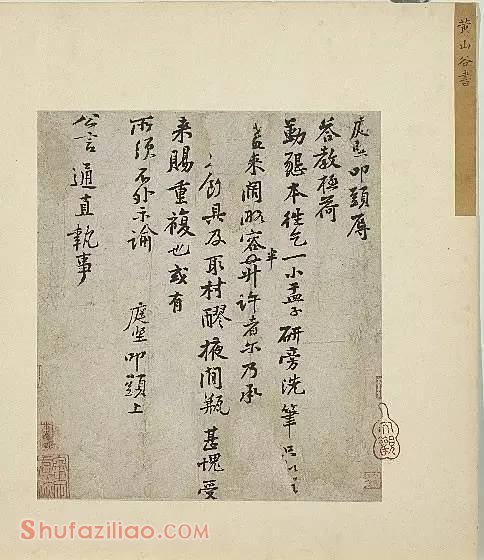 黄山谷書
庭堅叩頭辱
答教極荷
勤懇本往乞一小盂子研旁洗筆
盖来闊略容半升許者尔乃承
創具及取材醪掖闊瓶甚愧受
来賜重複也或有
所須不外示諭 庭堅叩頭上
公言通直執事
Shufaziliao.COM